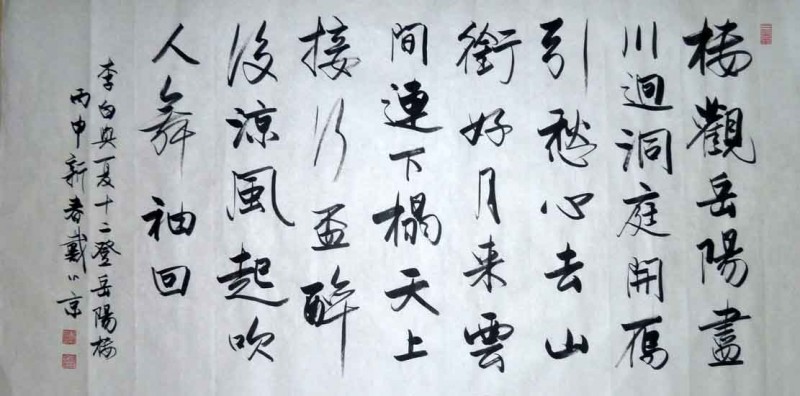 楼觀岳陽盡
川迥洞庭開鴈
引愁心去山
銜好月来雲
間連下榻天上
接行盃醉
後涼風起吹
人舞袖回
李白與夏十二登岳陽楼
丙申新春戴小京